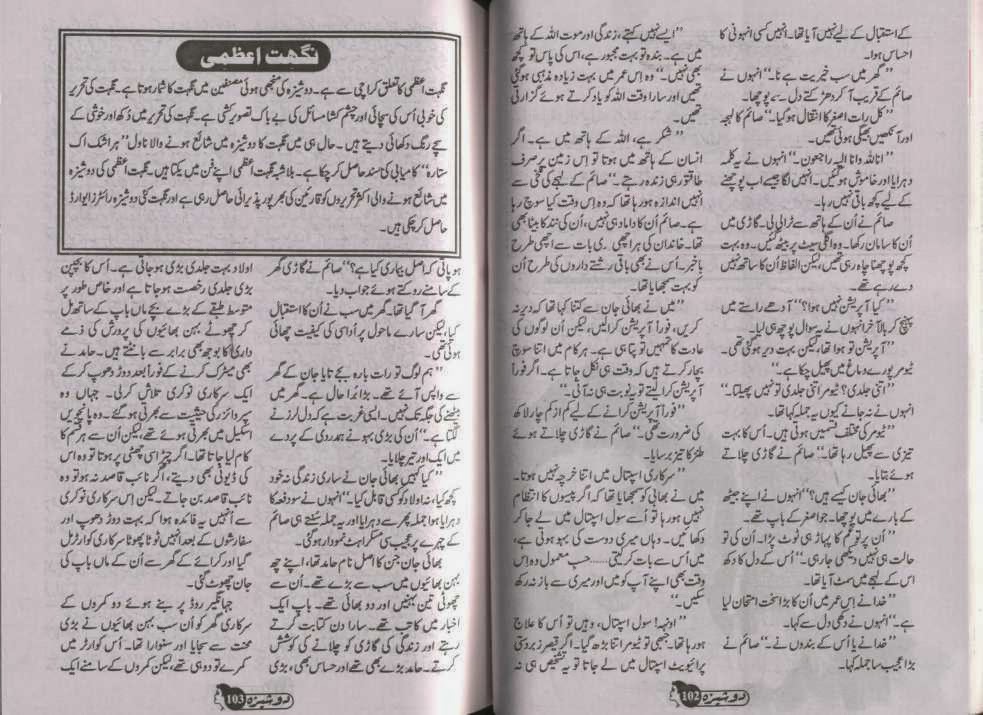 کے استقبال کے لیے نہیں آیا تھا۔ انہیں کسی انہونی کا
احساس ہوا۔
”گھر میں سب خیریت ہے نا۔“ انہوں نے
صائم کے قریب آ کر دھڑکتے دل سے پوچھا۔
”کل رات اصغر کا انتقال ہو گیا۔“ صائم کا لہجہ
اور آنکھیں بھیگی ہوئی تھیں۔
”انا للہ وانا الیہ راجعون۔“ انہوں نے یہ کلمہ
دہرایا اور خاموش ہو گئیں۔ انہیں لگا جیسے اب پوچھنے
کے لیے کچھ باقی نہیں رہا۔
صائم نے اُن کے ہاتھ سے ٹرالی لی۔ گاڑی میں
اُن کا سامان رکھا۔ وہ اگلی سیٹ پر بیٹھ گئیں۔ وہ بہت
کچھ پوچھنا چاہ رہی تھیں، لیکن الفاظ اُن کا ساتھ نہیں
دے رہے تھے۔
”کیا آپریشن نہیں ہوا؟“ آدھے راستے میں
پہنچ کر بالآخر انہوں نے یہ سوال پوچھ ہی لیا۔
”آپریشن تو ہوا تھا، لیکن بہت دیر ہو گئی تھی۔
ٹیومر پورے دماغ میں پھیل چکا ہے۔“
”اتنی جلدی؟ ٹیومر اتنی جلدی تو نہیں پھیلتا۔“
انہوں نے نہ جانے کیوں یہ جملہ کہا تھا۔
”ٹیومر کی مختلف قسمیں ہوتی ہیں۔ اُس کا بہت
تیزی سے پھیل رہا تھا۔“ صائم نے گاڑی چلاتے
ہوئے بتایا۔
”بھائی جان کیسے ہیں؟“ انہوں نے اپنے جیٹھ
کے بارے میں پوچھا۔ جو اصغر کے باپ تھے۔
”اُن پر تو غم کا پہاڑ ہی ٹوٹ پڑا۔ اُن کی تو
حالت ہی نہیں دیکھی جا رہی۔“ اُس کے دل کا دکھ
اس کے لہجے میں سمٹ آیا تھا۔
”خدا نے اِس عمر میں اُن کا بڑا سخت امتحان لیا
ہے۔“ انہوں نے دکھی دل سے کہا۔
”خدا نے یا اُس کے بندوں نے۔“ صائم نے
بڑا عجیب سا جملہ کہا۔
”ایسے نہیں کہتے، زندگی اور موت اللہ کے ہاتھ
میں ہے۔ بندہ تو بہت مجبور ہے، اس کی پاس تو کچھ
بھی نہیں۔“ وہ اِس عمر میں بہت زیادہ مذہبی ہو گئی
تھیں اور سارا وقت اللہ کو یاد کرتے ہوئے گزارتی
تھیں۔
”شکر ہے، اللہ کے ہاتھ میں ہے۔ اگر
انسان کے ہاتھ میں ہوتا تو اس زمین پر صرف
طاقتور ہی زندہ رہتے۔“ صائم کے لہجے کی تلخی سے
انہیں اندازہ ہو رہا تھا کہ وہ اِس وقت کیا سوچ رہا
ہے۔ صائم اُن کا داماد ہی نہیں، اُن کی نند کا بیٹا بھی
تھا۔ خاندان کی ہر اچھی بری بات سے اچھی طرح
باخبر۔ اُس نے بھی باقی رشتے داروں کی طرح اُن
کو بہت سمجھایا تھا۔
”میں نے بھائی جان سے کتنا کہا تھا کہ دیر نہ
کریں، فوراً آپریشن کرا لیں، لیکن اُن لوگوں کی
عادت کا تمہیں تو پتا ہی ہے۔ ہر کام میں اتنا سوچ
بچار کرتے ہیں کہ وقت ہی نکل جاتا ہے۔ اگر فوراً
آپریشن کرا لیتے تو یہ نوبت ہی نہ آتی۔“
”فوراً آپریشن کرانے کے لیے کم از کم چار لاکھ
کی ضرورت تھی۔“ صائم نے گاڑی چلاتے ہوئے
طنز کا تیر برسایا۔
”سرکاری اسپتال میں اتنا خرچہ نہیں ہوتا۔
میں نے بھابی کو سمجھایا تھا کہ اگر پیسوں کا انتظام
نہیں ہو رہا تو اُسے سول اسپتال میں لے جا کر
دکھائیں۔ وہاں میری دوست کی بہو ہوتی ہے،
میں اُس سے بات کر لیتی......... حسب معمول وہ اِس
وقت بھی اپنے آپ کو میں اور میری سے باز نہ رکھ
سکیں۔“
”اونہہ! سول اسپتال، وہیں تو اُس کا علاج
ہو رہا تھا۔ جبھی تو ٹیومر اتنا بڑھ گیا۔ اگر قیصر زبردستی
پرائیویٹ اسپتال میں لے جاتا تو یہ تشخیص ہی نہ
دوشیزہ 102
نگہت اعظمی
نگہت اعظمی کا تعلق کراچی سے ہے۔ دوشیزہ کی منجھی ہوئی مصنفین میں نگہت کا شمار ہوتا ہے۔ نگہت کی تحریر
کی خوبی اُس کی سچائی اور چشم کشا مسائل کی بے باک تصویر کشی ہے۔ نگہت کی تحریر میں دُکھ اور خوشی کے
سچے رنگ دکھائی دیتے ہیں۔ حال ہی میں نگہت کا دوشیزہ میں شائع ہونے والا ناول ”ہر اشک اک
ستارہ“ کامیابی کی سند حاصل کر چکا ہے۔ بلاشبہ نگہت اعظمی اپنے فن میں یکتا ہیں۔ نگہت اعظمی کی دوشیزہ
میں شائع ہونے والی اکثر تحریروں کو قارئین کی بھرپور پذیرائی حاصل رہی ہے اور نگہت کئی دوشیزہ رائٹرز ایوارڈ
حاصل کر چکی ہیں۔
ہو پاتی کہ اصل بیماری کیا ہے؟“ صائم نے گاڑی گھر
کے سامنے روکتے ہوئے جواب دیا۔
گھر آ گیا تھا۔ گھر میں سب نے اُن کا استقبال
کیا، لیکن سارے ماحول پر اُداسی کی کیفیت چھائی
ہوئی تھی۔
”ہم لوگ تو رات بارہ بجے تایا جان کے گھر
سے واپس آئے تھے۔ بڑا بُرا حال ہے۔ گھر میں
بیٹھنے کی جگہ تک نہیں۔ ایسی غربت ہے کہ دل لرزنے
لگتا ہے۔“ اُن کی بڑی بہو نے ہمدردی کے پردے
میں ایک اور تیر چلایا۔
”کیا کہیں بھائی جان نے ساری زندگی نہ خود
کچھ کیا، نہ اولاد کو کسی قابل کیا۔“ انہوں نے سو دفعہ کا
دہرایا ہوا جملہ پھر سے دہرایا اور یہ جملہ سنتے ہی صائم
کے چہرے پر عجیب سی مسکراہٹ نمودار ہو گئی۔
بھائی جان جن کا اصل نام حامد تھا، اپنے چھ
بہن بھائیوں میں سب سے بڑے تھے۔ اُن سے
چھوٹی تین بہنیں اور دو بھائی تھے۔ باپ ایک
اخبار میں کاتب تھے۔ سارا دن کتابت کرتے
رہتے اور زندگی کی گاڑی کو چلانے کی کوشش
کرتے۔ حامد بڑے بھی تھے اور حساس بھی، بڑی
اولاد بہت جلدی بڑی ہو جاتی ہے۔ اُس کا بچپن
بڑی جلدی رخصت ہو جاتا ہے اور خاص طور پر
متوسط طبقے کے بڑے بچے ماں باپ کے ساتھ مل
کر چھوٹے بہن بھائیوں کی پرورش کی ذمے
داری کا بوجھ بھی برابر سے بانٹتے ہیں۔ حامد نے
بھی میٹرک کرنے کے فوراً بعد دوڑ دھوپ کر کے
ایک سرکاری نوکری تلاش کر لی۔ جہاں وہ
سپروائزر کی حیثیت سے بھرتی ہو گئے۔ وہ پانچویں
اسکیل میں بھرتی ہوئے تھے، لیکن اُن سے ہر قسم کا
کام لیا جاتا تھا۔ اگر چپڑاسی چھٹی پر ہوتا تو وہ اس
کی ڈیوٹی بھی دیتے، اگر نائب قاصد نہ ہوتا تو وہ
نائب قاصد بن جاتے۔ لیکن اس سرکاری نوکری
سے اُنہیں یہ فائدہ ہوا کہ بہت دوڑ دھوپ اور
سفارشوں کے بعد انہیں ٹوٹا پھوٹا سرکاری کوارٹر مل
گیا اور کرائے کے گھر سے اُن کے ماں باپ کی
جان چھوٹ گئی۔
جہانگیر روڈ پر بنے ہوئے دو کمروں کے
سرکاری گھر کو اُن سب بہن بھائیوں نے بڑی
محنت سے سجایا اور سنوارا تھا۔ اُس کوارٹر میں
کمرے تو دو ہی تھے، لیکن کمروں کے سامنے ایک
دوشیزہ 103